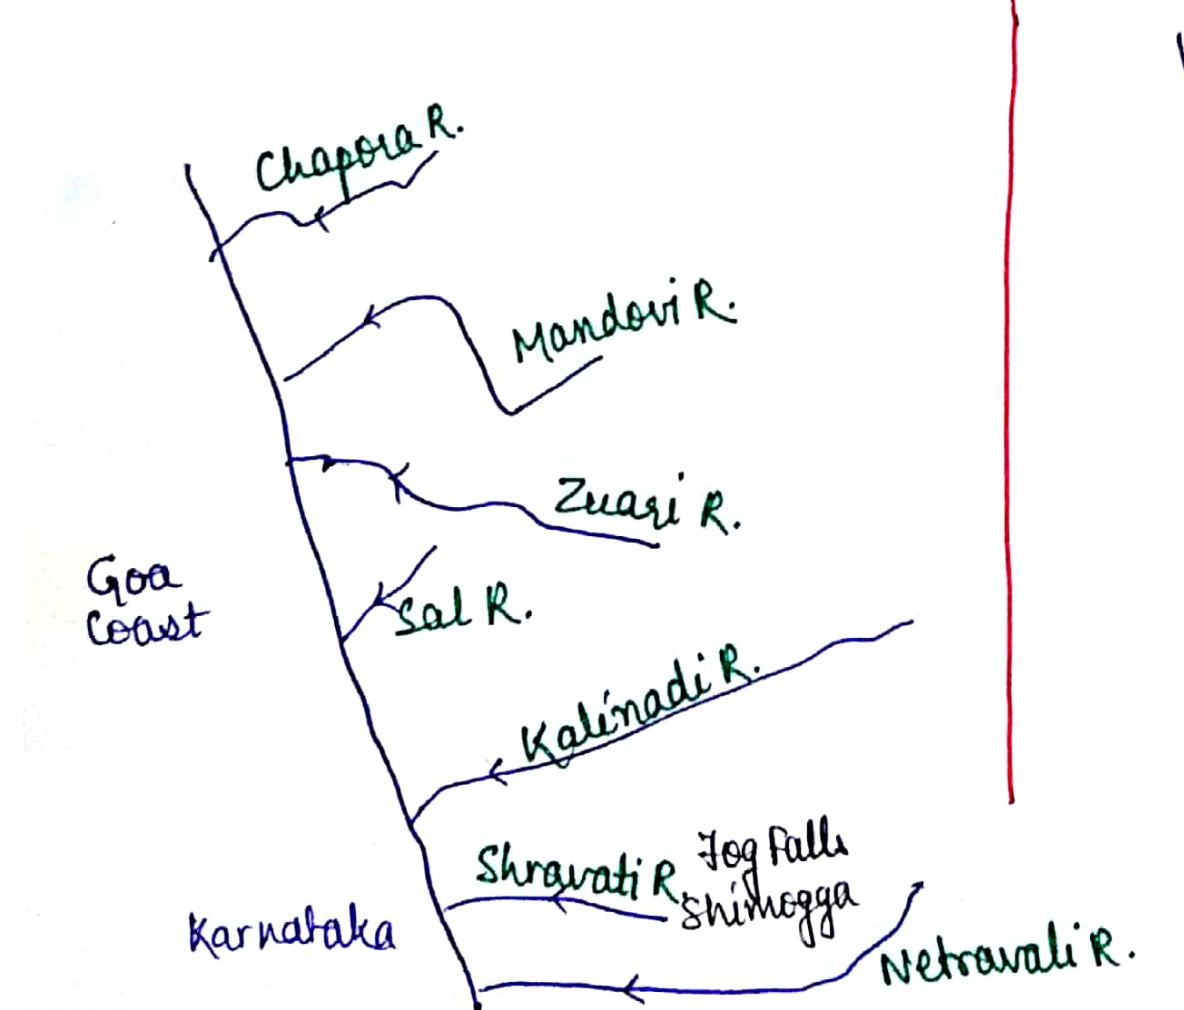 Chapora R.
Mandovi R.
Zuari R.
Goa
Coast
Sal R.
Kalinadi R.
Shravati R.
Jog Falls
Shimogga
Karnataka
Netravali R.